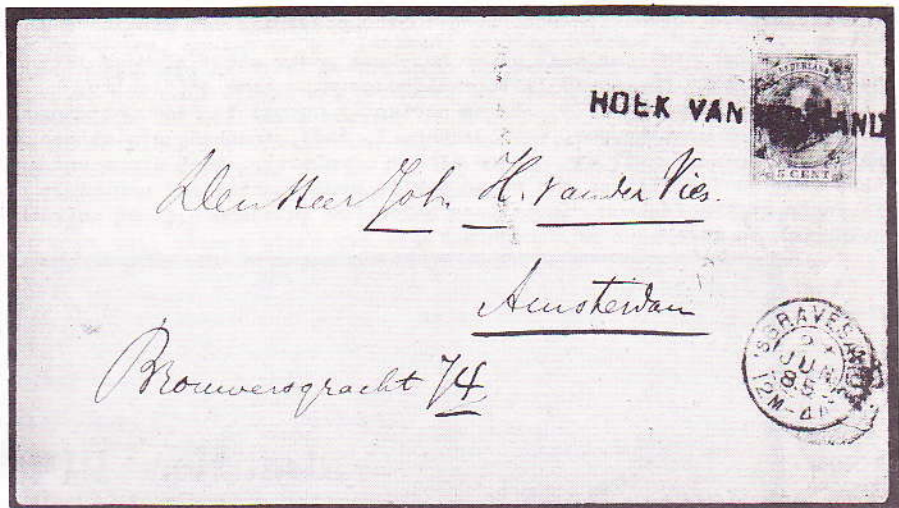 NEDERLAND
HOEK VAN HOLLAND
5 CENT
Den Heer Joh. H. van der Vies.
Amsterdam
Brouwersgracht 74
'S GRAVESANDE
JUN
85
12M-4N